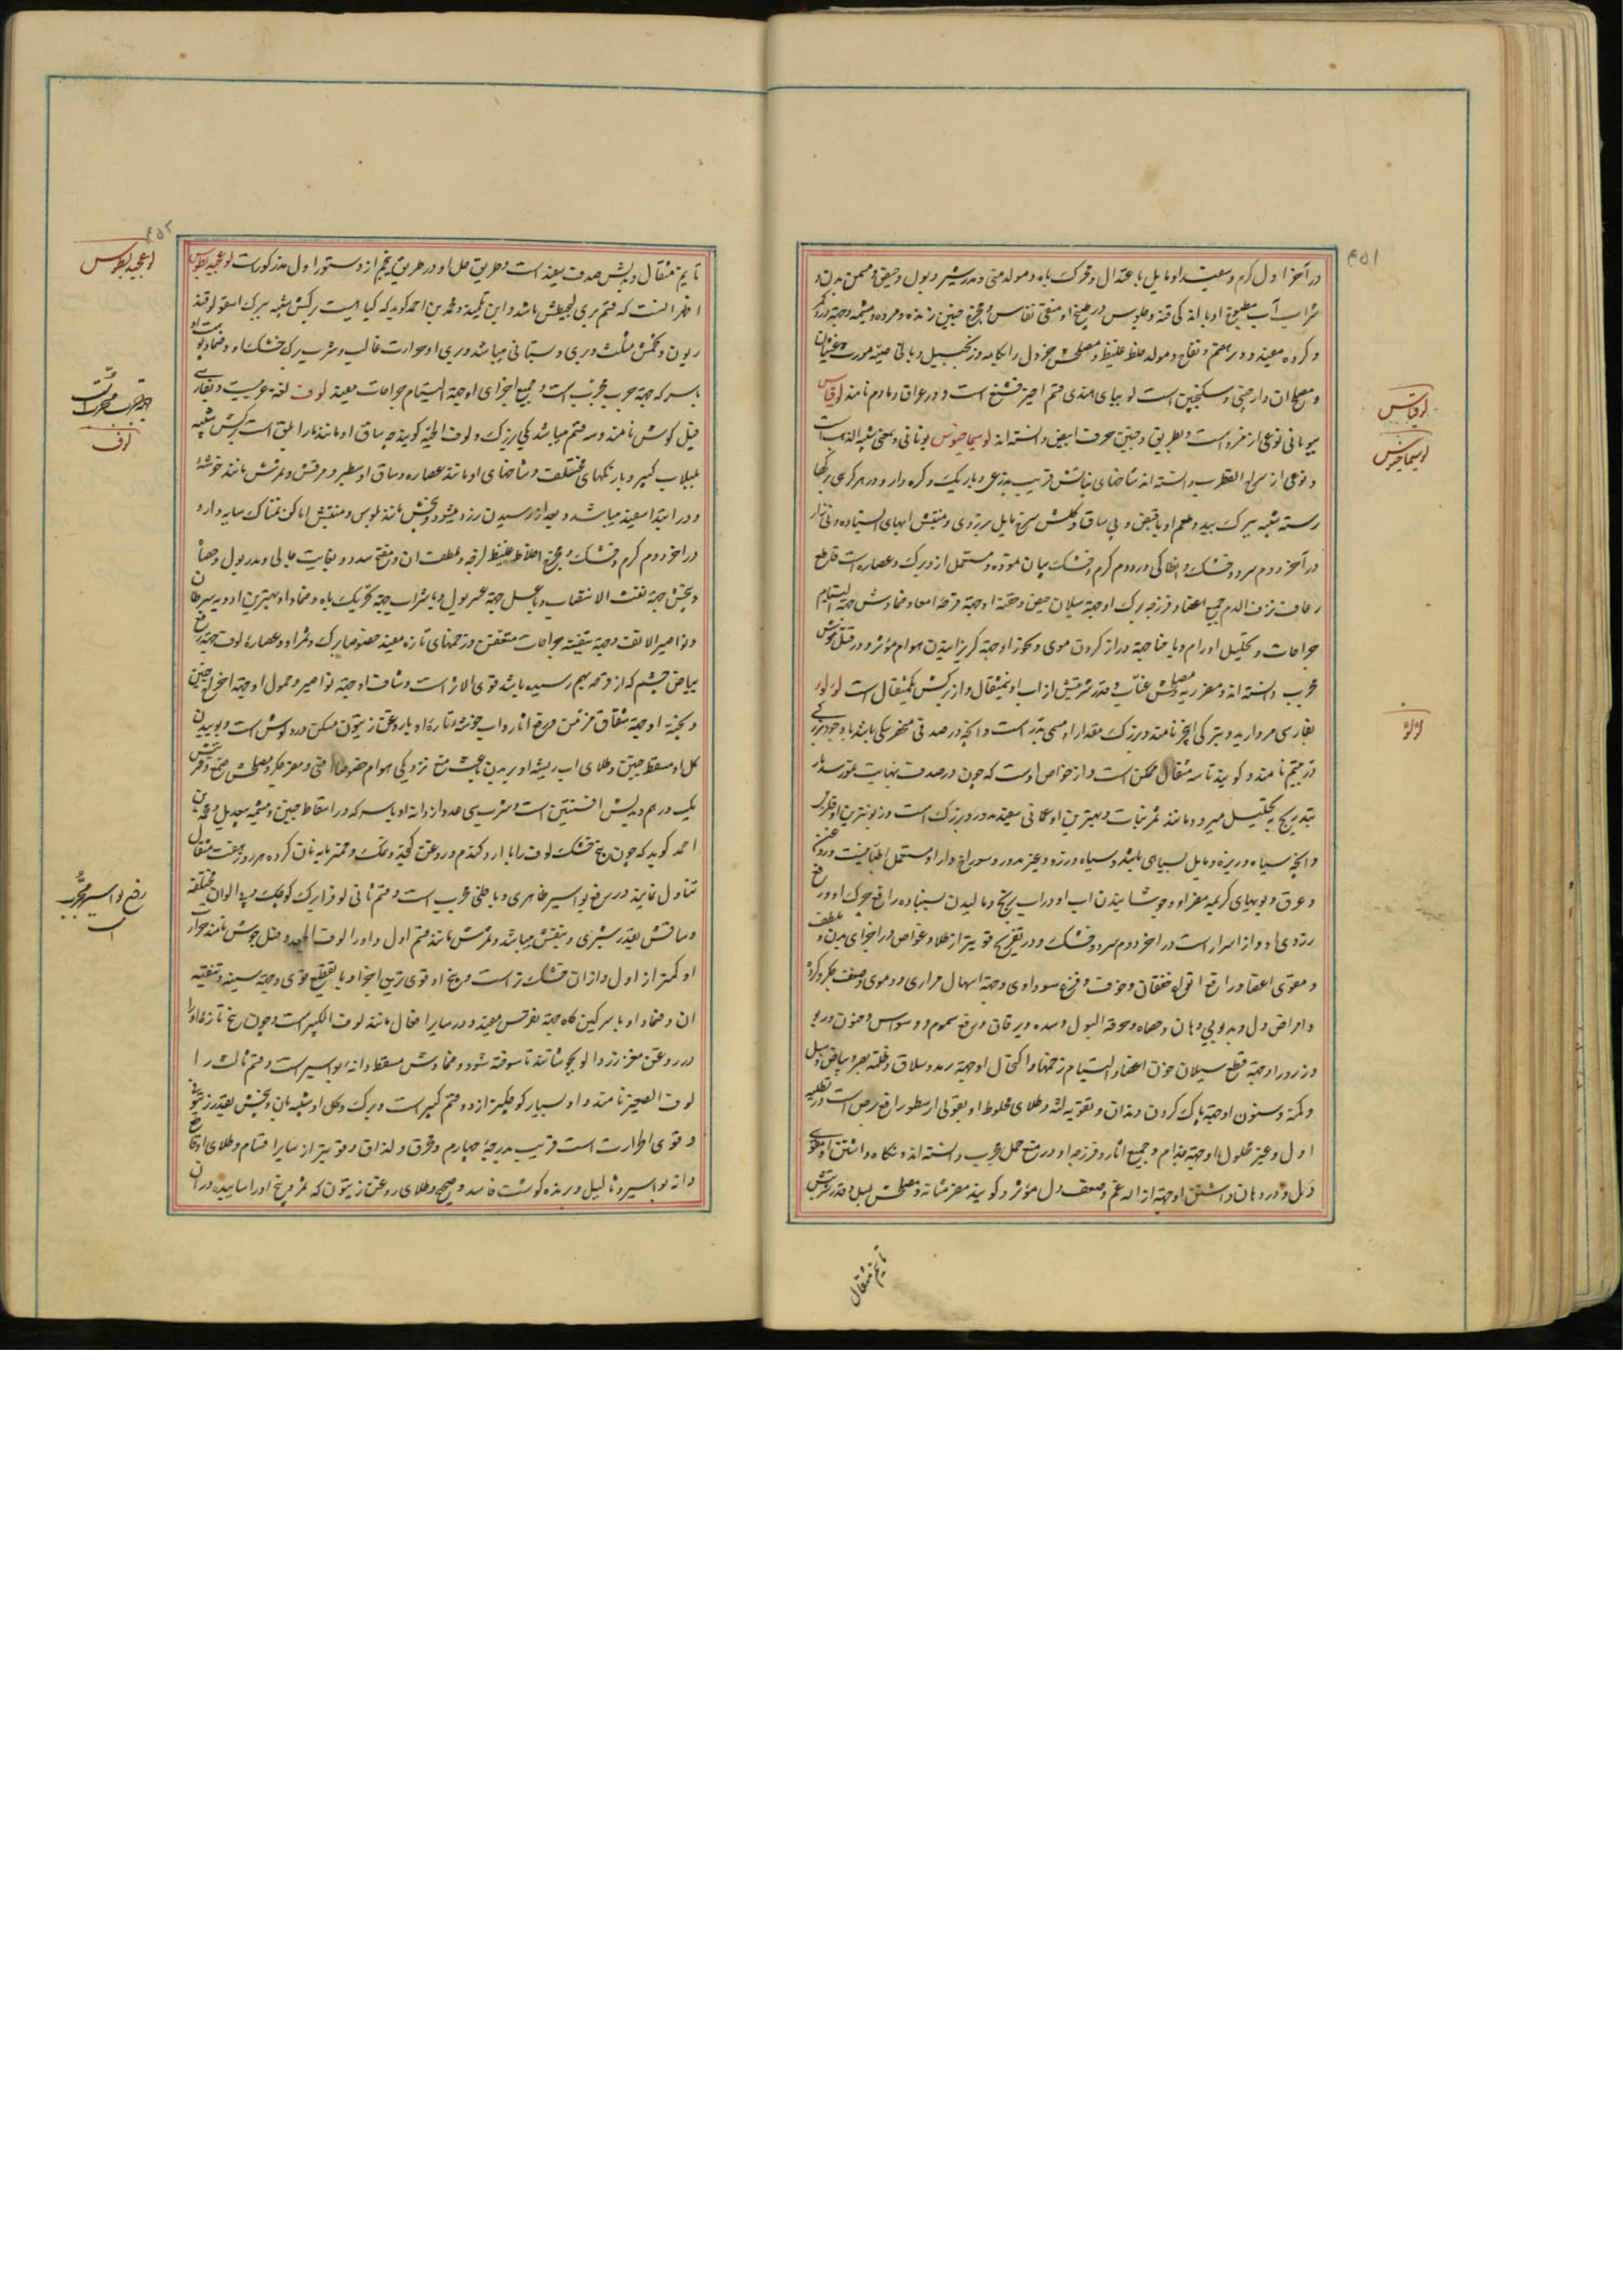 ۴۵۱
در آخر اول گرم و سفید او مایل باعتدال و محرک باه و مولد منی و مدر شیر و بول و حیض و مسمن بدن و
شراب آب مطبوخ او با اندکی قنه و جلوس در طبیخ او منقی نفاس و مخرج جنین زنده و مرده و مشیمه و جهة درد کمر
و گرده مفید و دیر هضم و نفاخ و مولد خلط غلیظ و مصلحش خردل را بکامه و زنجبیل و باقی
و مصلح آن دارچینی و سکنجبین است لوبیای هندی قسم اخیر است و در عراق و مادم نامند لوقاس
لوقاس
بیونانی نوعی از است و بطریق و جنین حرف ابیض دانسته اند لوسیماخیوس یونانی و بمعنی شبیه است
لوسیماخیوس
و نوعی از سراج القطرب دانسته اند شاخهای نباتش قریب بذرعی و باریک و گره دار و در هر گرهی برگها
رسته شبیه ببرگ بید و طعم او با قبض و بی ساق و گلش سرخ مایل بزردی و منبتش آبهای ایستاده و نی زار
در آخر دوم سرد و خشک و انطاکی در دوم گرم و خشک بیان نموده و مستعمل از و برگ و عصاره است قاطع
رعاف و نزف الدم جمیع اعضا و فرزجه برگ او جهة سیلان حیض و حقنه او جهة قرحه امعا و ضمادش جهة التیام
جراحات و تحلیل اورام و با حنا جهة دراز کردن موی و بخور او جهة گریزانیدن هوام مؤثر و در قتل موش
مجرب دانسته اند و مضر ریه و مصلحش عناب و قدر شربتش از آب او نیمثقال و از برگش یکمثقال است لؤلؤ
لؤلؤ
بفارسی مروارید و بترکی اینجو نامند و بزرگ مقدار او مسمی بدر است و آنچه در صدفی منحصر بیکی باشد با وجود بزرگی
در یتیم نامند و گویند تا سه مثقال ممکن است و از خواص اوست که چون در صدف بنهایت نمو رسد باز
بتدریج بتحلیل میرود مانند ثمر نباتات و بهترین او عمانی سفید مدور بزرگ است و زبون‌ترین او قلزمی
و آنچه سیاه و ریزه و مایل بسیاهی باشد و سیاه و زرد و غیر مدور و سوراخ دار او مستعمل اطبا نیست و روغن
و عرق و بویهای کریه مضر او و جوشانیدن آب او در آب برنج و مالیدن سنباده رافع چرک او و رفع
زردی او و از اسرار است در آخر دوم سرد و خشک و در تفریح قویتر از طلا و غواص در اجزای بدن و ملطف
و مقوی اعضا و رافع انواع خفقان و خوف و فزع سوداوی و جهة اسهال مراری و دموی و ضعف جگر و گرده
و امراض دل و بدبویی دهان و حصاه و حرقة البول و سده و یرقان و رفع سموم و وسواس و جنون و ربو
و ذرور او جهة قطع سیلان خون اعضا و التیام زخمها و اکتحال او جهة رمد و سلاق و ظلمة بصر و بیاض و سبل
و کمنه و سنون او جهة پاک کردن دندان و تقویه لثه و طلای مخلوط او بقولی ارسطو رافع برص است در طلیه
اول و غیر محلول او جهة جذام و جمیع آثار و فرزجه او در منع حمل مجرب دانسته اند و نگاه داشتن او مقوی
دل و در دهان داشتن او جهة ازاله غم و ضعف دل مؤثر و گویند مضر مثانه و مصلحش بسد و قدر شربتش
تا نیم مثقال
۴۵۲
تا نیم مثقال و بدلش صدف سفید است و طریق حل او در طریق پنجم از دستور اول مذکور است لوغجیدیطوس
لوغجیدیطوس
اظهر آنست که قسم بری باشد و ابن تلمیذ و محمد بن احمد گوید که گیاهیست برگش شبیه ببرگ اسقولوقند
ریون و تخمش مثلث و بری و بستانی میباشد و بری او حرارت غالب و شرب برگ خشک او و ضماد
با سرکه جهة جرب مجربست و جمیع اجزای او جهة التیام جراحات مفید لوف لغة عربیست و بفارسی
لوف
فیل گوش نامند و سه قسم میباشد یکی بزرگ و لوف الحیه گویند چه ساق او مانند مار ابلق است برگش شبیه
بلبلاب کبیر و با رنگهای مختلف و شاخهای او مانند عصا و ساق او سطبر و مرقش و ثمرش مانند خوشه
و در ابتدا سفید میباشد و بعد از رسیدن زرد میشود و بیخش مانند بلبوس و منبتش اماکن نمناک سایه دارد
در آخر دوم گرم و خشک و مخرج اخلاط غلیظ لزجه و ملطف آن و مفتح سدد و بغایت جالی و مدر بول و
و بیخش جهة نفث الانتصاب و با عسل جهة عسر بول و با شراب جهة تحریک باه و ضماد او بهترین ادویه سرطان
و نواصیر الانف و جهة تنقیه جراحات متعفن و زخمهای تازه مفید خصوصا برگ و ثمر او و عصاره لوف جهة رفع
بیاض چشم که از قرحه بهم رسیده باشد قوی الاثر است و شیاف او جهة نواصیر و حمول او جهة اخراج جنین
و بخته او جهة شقاق مزمن و رفع آثار و آب خوشه تازه او با روغن زیتون مسکن درد گوش است و بوییدن
گل او مسقط جنین و طلای آب ریشه او بر بدن باعث منع نزدیکی هوام خصوصا افعی و مضر جگر و مصلحش صمغ و قدر شربتش
یک درهم و بدلش افسنتین است و شرب سی عدد از دانه او با سرکه در اسقاط جنین و مشیمه بیعدیل و محمد بن
احمد گوید که چون بیخ خشک لوف را با آرد گندم و روغن کنجد و نمک و خمیرمایه نان کرده هر روز هفت مثقال
تناول نمایند در رفع بواسیر ظاهری و باطنی مجرب است و قسم ثانی لوف را برگ کوچک و با الوان مختلفه
رفع بواسیر مجرب
است
و ساقش بقدر شبری و بنفش میباشد و ثمرش مانند قسم اول و او را لوف الجعد و فیل جوش نامند حرارت
او کمتر از اول و از آن خشک تر است و بیخ او قوی ترین اجزا و با تقطیع قوی و جهة سینه و تنقیه
آن و ضماد او با سرگین گاو جهة نقرس مفید و در سایر افعال مانند لوف الکبیر است و چون بیخ تازه او را
در روغن مغز زردآلو بجوشانند تا سوخته شود و ضمادش مسقط دانه بواسیر است و قسم ثالث را
لوف الصغیر نامند و او بسیار کوچکتر از دو قسم کبیر است و برگ و گل او شبیه بآن و بیخش بقدر زیتونی
و قوی الحرارت است قریب بدرجه چهارم و محرق و لذاق و قویتر از سایر اقسام و طلای او رافع
دانه بواسیر و ثآلیل و برنده گوشت فاسد و صحیح و طلای روغن زیتون که ثمر و بیخ او را ساییده در آن